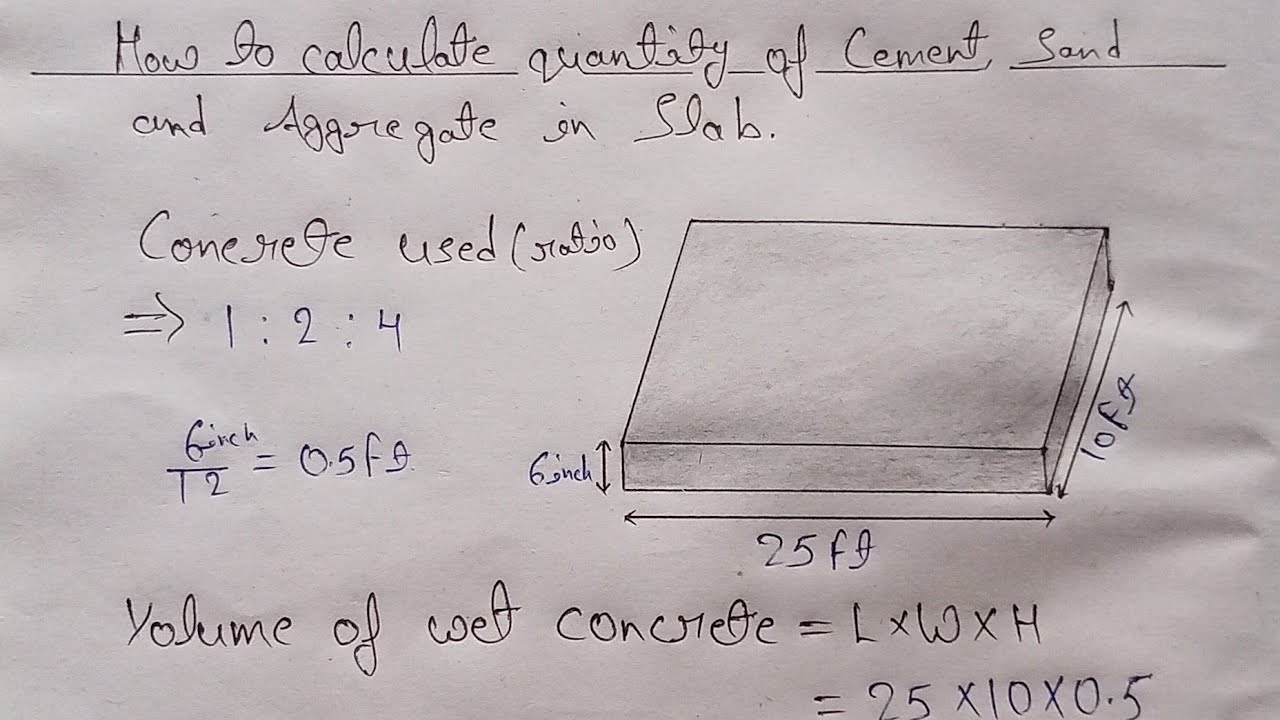 How to calculate quantity of Cement, Sand
and Aggregate in Slab.
Concrete used (ratio)
⇒ 1 : 2 : 4
6inch/12 = 0.5ft
6inch
10ft
25ft
Volume of wet concrete = L×W×H
= 25×10×0.5